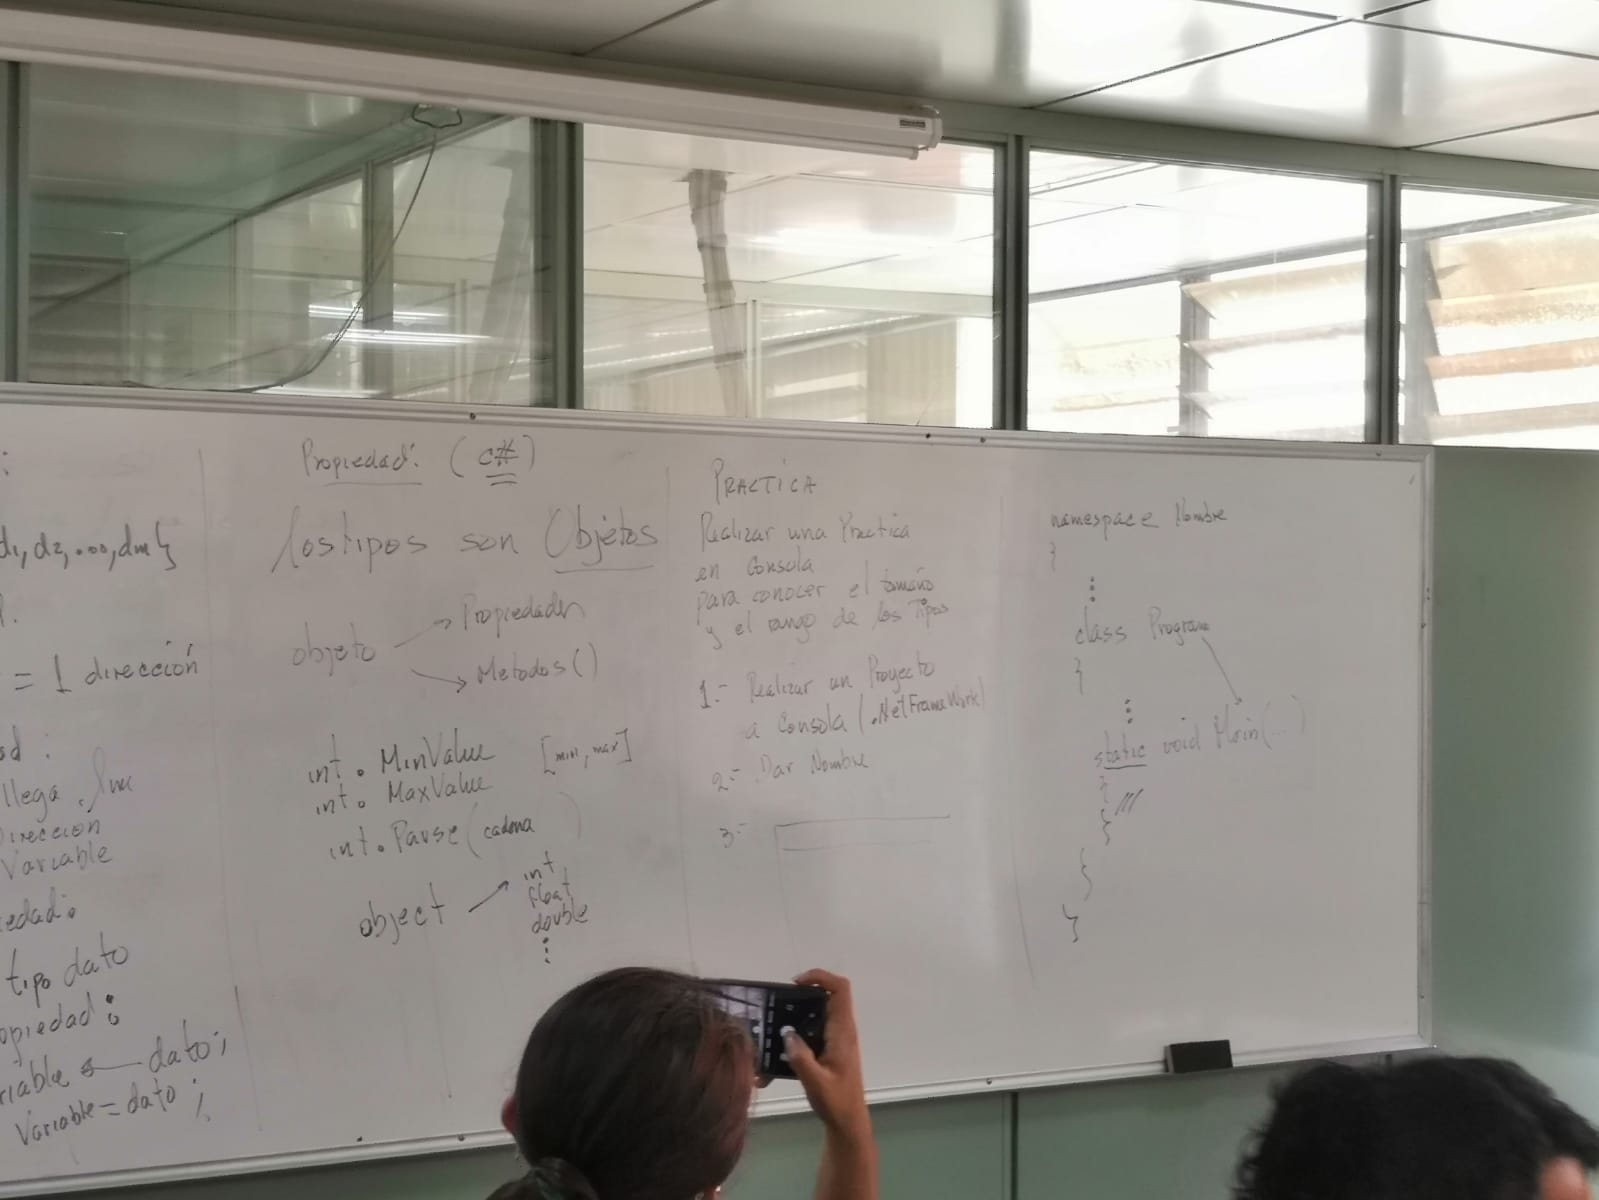 :
d1, d2, ..., dm}
= 1 dirección
llega
Dirección
Variable
tipo dato
dato;
Variable = dato ;
Propiedad: (C#)
los tipos son Objetos
objeto
Propiedades
Metodos()
int . MinValue [min, max]
int . MaxValue
int . Parse (cadena )
object
int
float
double
PRACTICA
Realizar una Practica
en Consola
para conocer el tamaño
y el rango de los Tipos
1.- Realizar un Proyecto
a Consola (.NetFrameWork)
2.- Dar Nombre
3.-
namespace Nombre
{
class Program
{
static void Main(...)
{
///
}
}
}